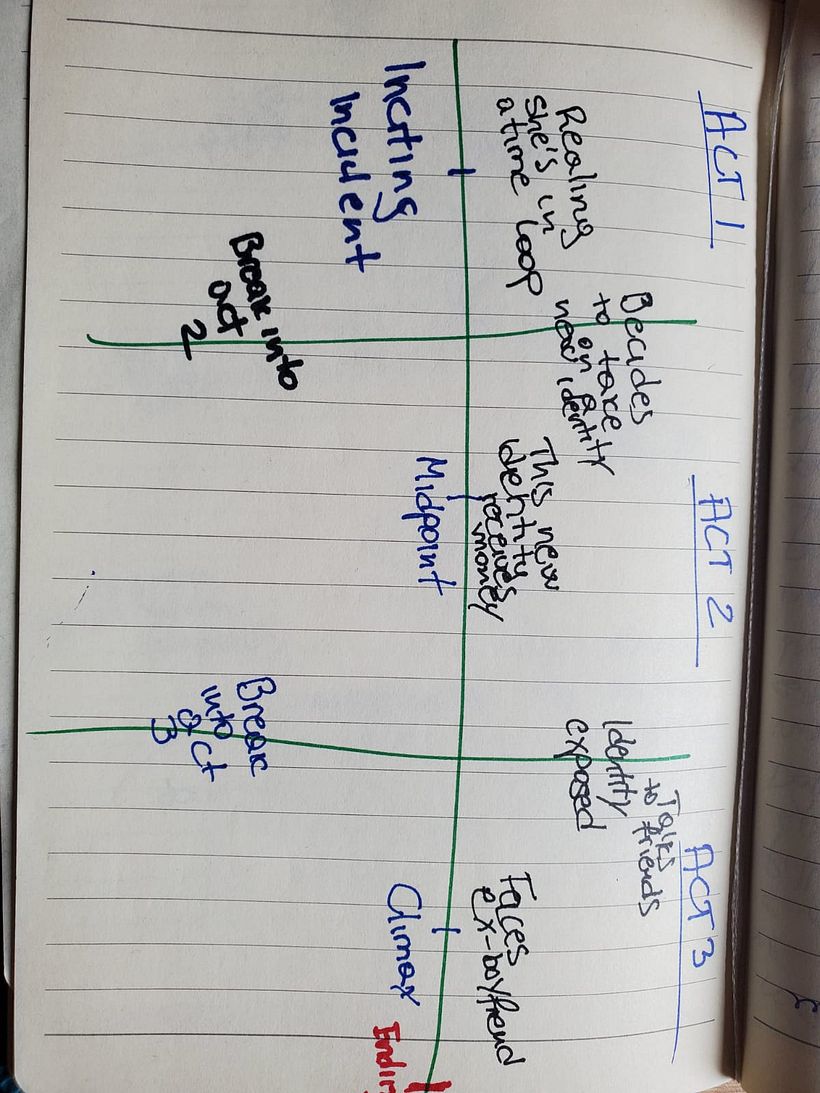 ACT 1
ACT 2
ACT 3
Realing
she's in
a time loop
Decides
to take
on a
new identity
This new
identity
receives
money
Talks
to friends
Identity
exposed
Faces
ex-boyfriend
Inciting
Incident
Break into
act
2
Midpoint
Break
into
act
3
Climax
Endin